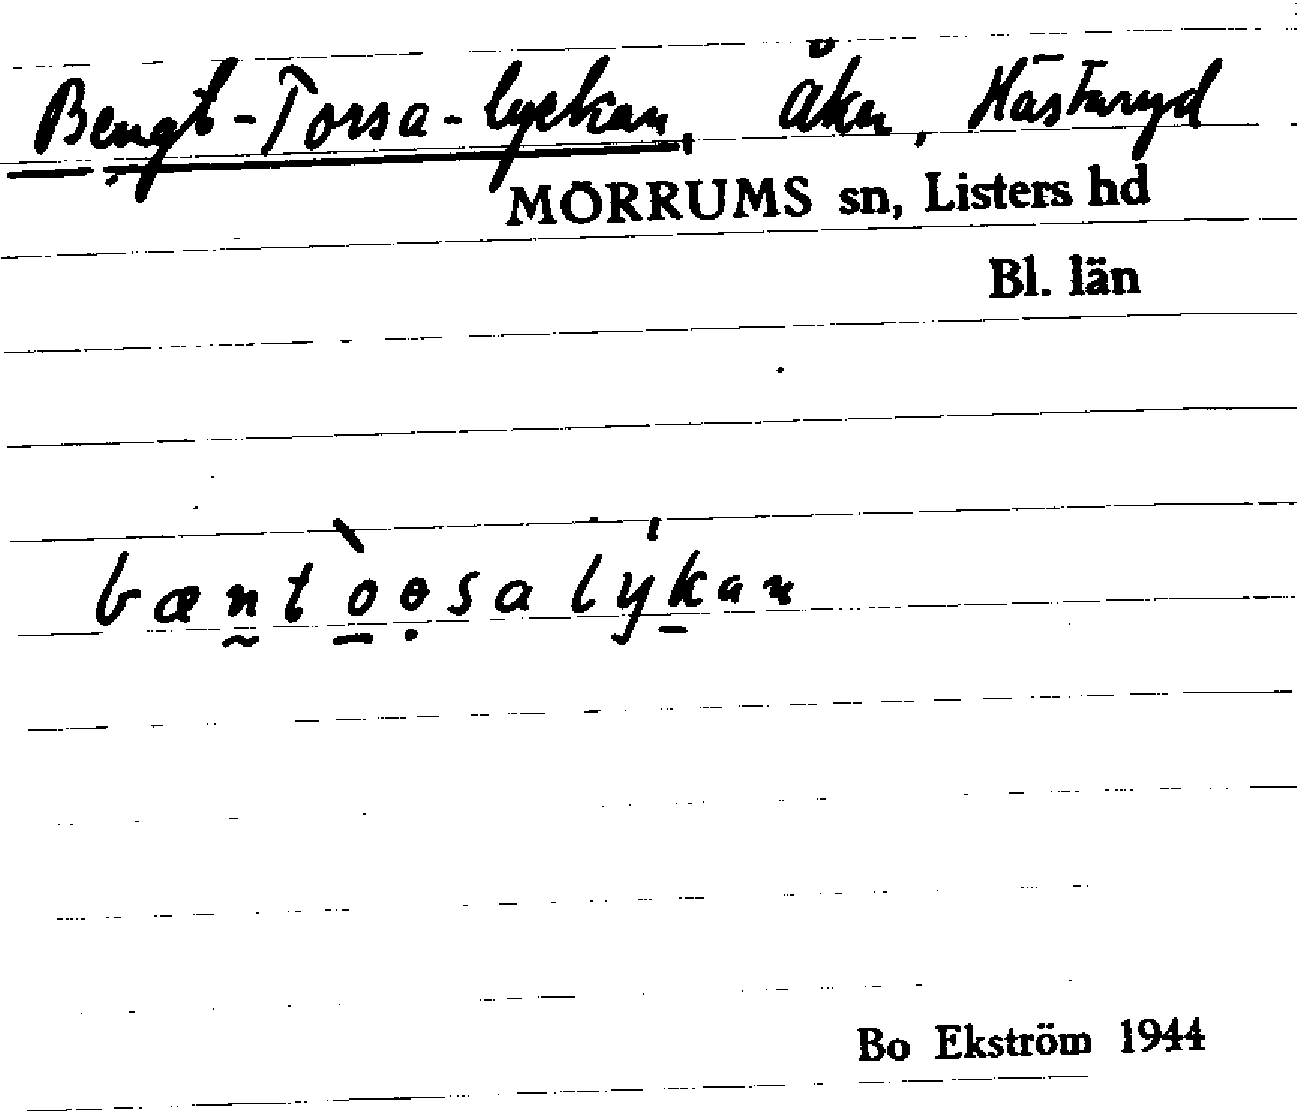 Bengt-Torsa-lyckan, åker, Hästaryd
MÖRRUMS sn, Listers hd
Bl. län
bæntòɵsalýkan
Bo Ekström 1944